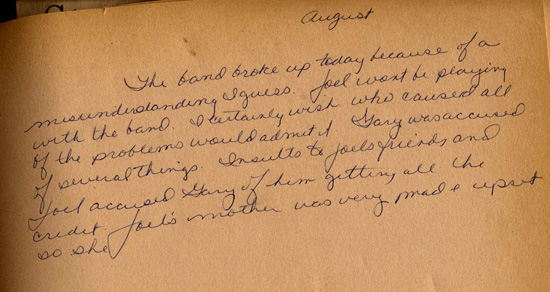 August
The band broke up today because of a
misunderstanding I guess. Joel wont be playing
with the band. I certainly wish who caused all
of the problems would admit it Gary was accused
of several things. Insults to Joels friends and
Joel accused Gary of him getting all the
credit
so she Joel's mother was very mad & upset